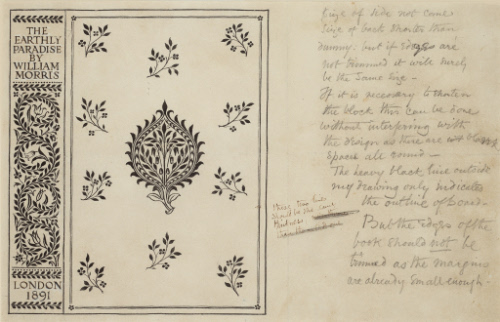 THE
EARTHLY
PARADISE
BY
WILLIAM
MORRIS
LONDON
1891
Size of side not come
Size of back shorter than
dummy. but if edges are
not trimmed it will surely
be the same size –
If it is necessary to shorten
the block this can be done
without interfering with
the design as there are
spaces all round –
The heavy black line outside
my drawing only indicates
the outline of board –
These two lines
should be the same
But the edges of the
book should not be
trimmed as the margins
are already small enough –